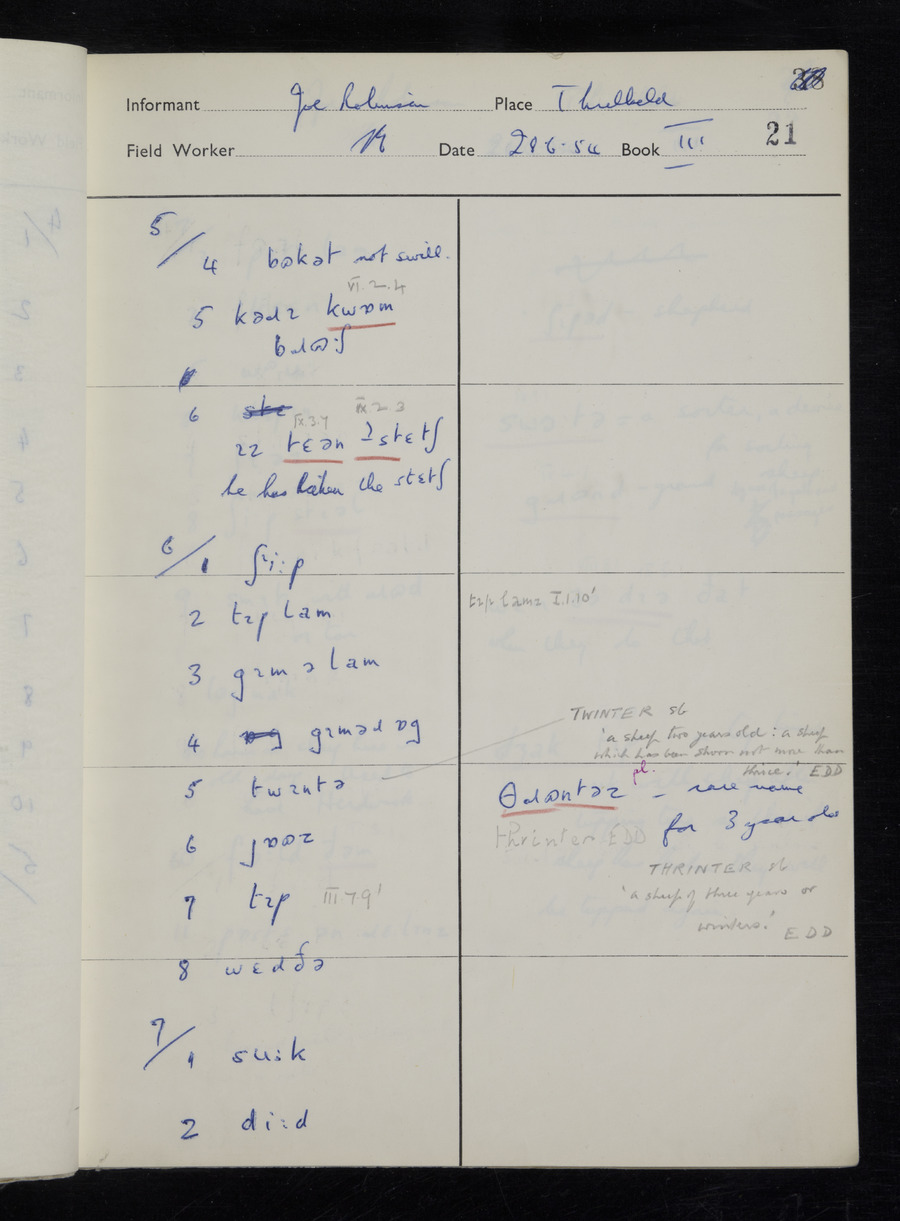 Informant Joe Robinson Place Threlkeld
21
Field Worker Date 28 6·54 Book III
5/
4 bʊkət not swill.
VI.2.4
5 kədz kwɒm
bɹʊʃ
6
IX.3.7 IX 2 3
ɪz tɛən ʔstɛtʃ
he has taken the stɛtʃ
6/1 ʃɪːp
2 tɪp lam tɪp lamz I.1.10'
3 gɪmə lam
TWINTER sb
4 gɪməɹ ɒg
'a sheep two years old : a sheep
which has been shorn not more than
thrice.' EDD
5 twɪntə
pl.
θɹʊntəz – rare name
for 3 year olds
thrinter EDD
6 jɒʊz
THRINTER sb
'a sheep of three years or
winters.' EDD
7 tɪp III.7.9'
8 wɛdðə
7/1 suːk
2 diːd